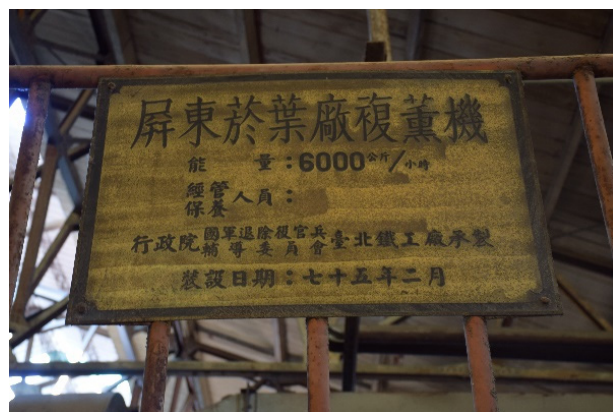 屏東菸葉廠複薰機
能量：6000公斤/小時
經管
保養人員：
行政院國軍退除役官兵輔導委員會臺北鐵工廠承製
裝設日期：七十五年二月